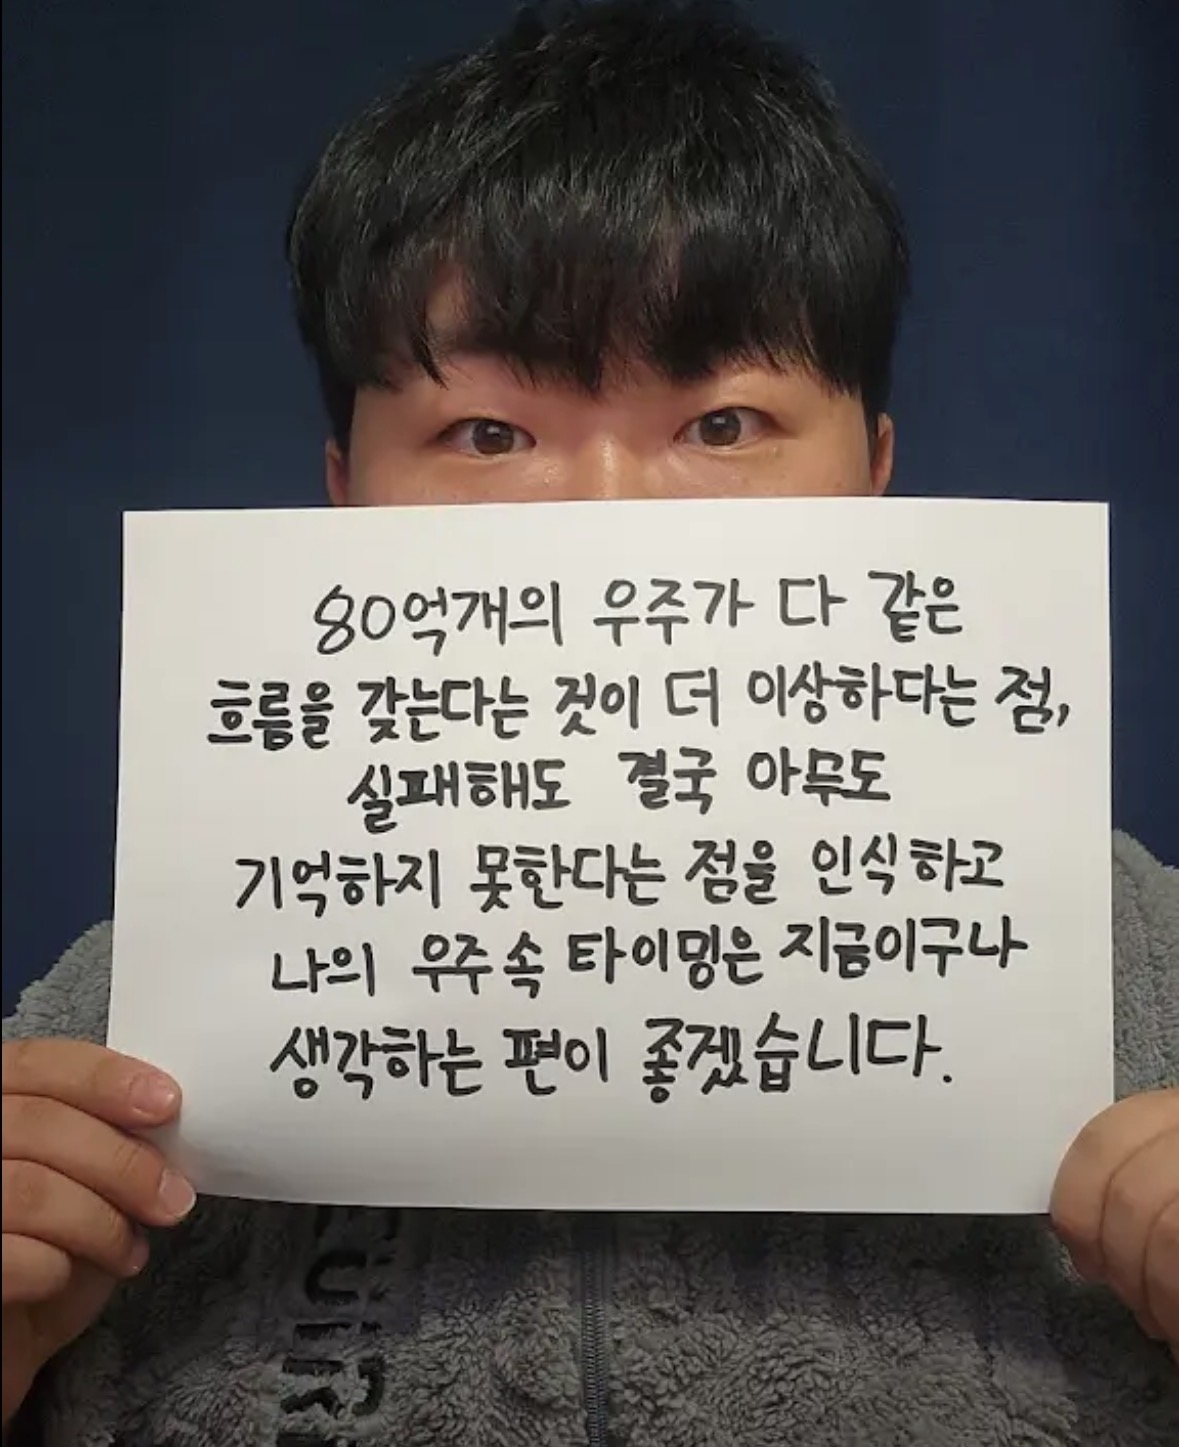 80억개의 우주가 다 같은
흐름을 갖는다는 것이 더 이상하다는 점,
실패해도 결국 아무도
기억하지 못한다는 점을 인식하고
나의 우주 속 타이밍은 지금이구나
생각하는 편이 좋겠습니다.